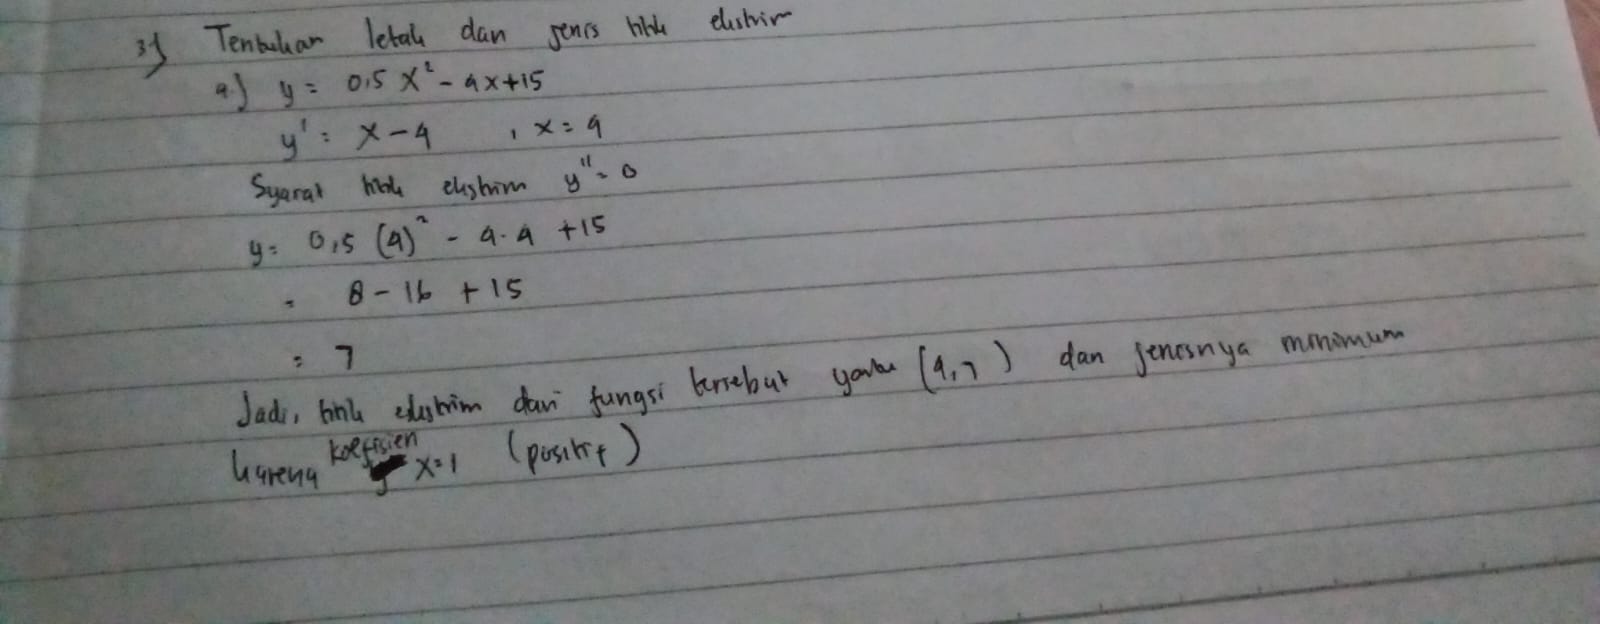 3) Tentukan letak dan jenis titik ekstrim
a) y = 0,5 x² - 4x+15
y' = x - 4 , x = 4
Syarat titik ekstrim y'' = 0
y = 0,5 (4)² - 4.4 +15
= 8 - 16 + 15
= 7
Jadi, titik ekstrim dari fungsi tersebut yaitu (4,7) dan jenisnya minimum
karena koefisien x=1 (positif)